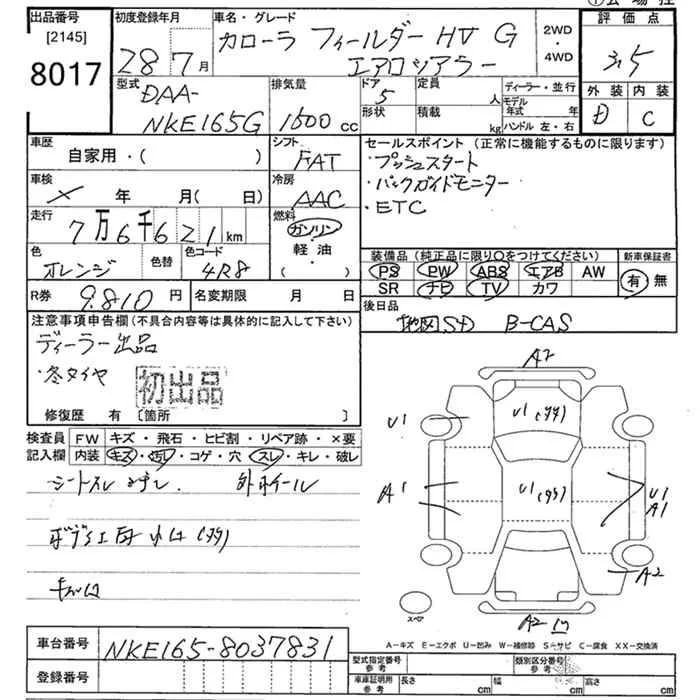 出品番号
[2145]
8017
初度登録年月
28 7月
車名・グレード
カローラ フィールダー HV G
エアロツアラー
2WD
・
4WD
評価点
3.5
外装 内装
D C
型式
DAA-
NKE165G
排気量
1500cc
ドア
5
形状
定員
人
積載
kg
ディーラー・並行
モデル年式 年
ハンドル 左・右
車歴
自家用・( )
シフト
FAT
車検
× 年 月(日)
冷房
AAC
走行
7万6千621km
燃料
ガソリン
軽油
( )
色
オレンジ
色替
色コード
4R8
R券
9.810円
名変期限 月 日
セールスポイント(正常に機能するものに限ります)
・プッシュスタート
・バックガイドモニター
・ETC
装備品(純正品に限り○をつけてください)
PS PW ABS エアB AW
SR ナビ TV カワ
新車保証書
有 無
後日品
地図SD B-CAS
注意事項申告欄(不具合内容等は具体的に記入して下さい)
ディーラー出品
・冬タイヤ
初出品
修復歴 有 〔箇所 〕
検査員 FW キズ・飛石・ヒビ割・リペア跡・×要
記入欄 内装 キズ・汚レ・コゲ・穴・スレ・キレ・破レ
シートスレ
ホイール
A2
U1
U1
U1
A1
U1
A1
A2
A2
スペア
A-キズ E-エクボ U-凹み W-補修跡 S-サビ C-腐食 XX-交換済
車台番号
NKE165-8037831
登録番号
型式指定番号
参考
類別区分番号
参考
車庫証明用
参考
長さ cm
幅 cm
高さ cm